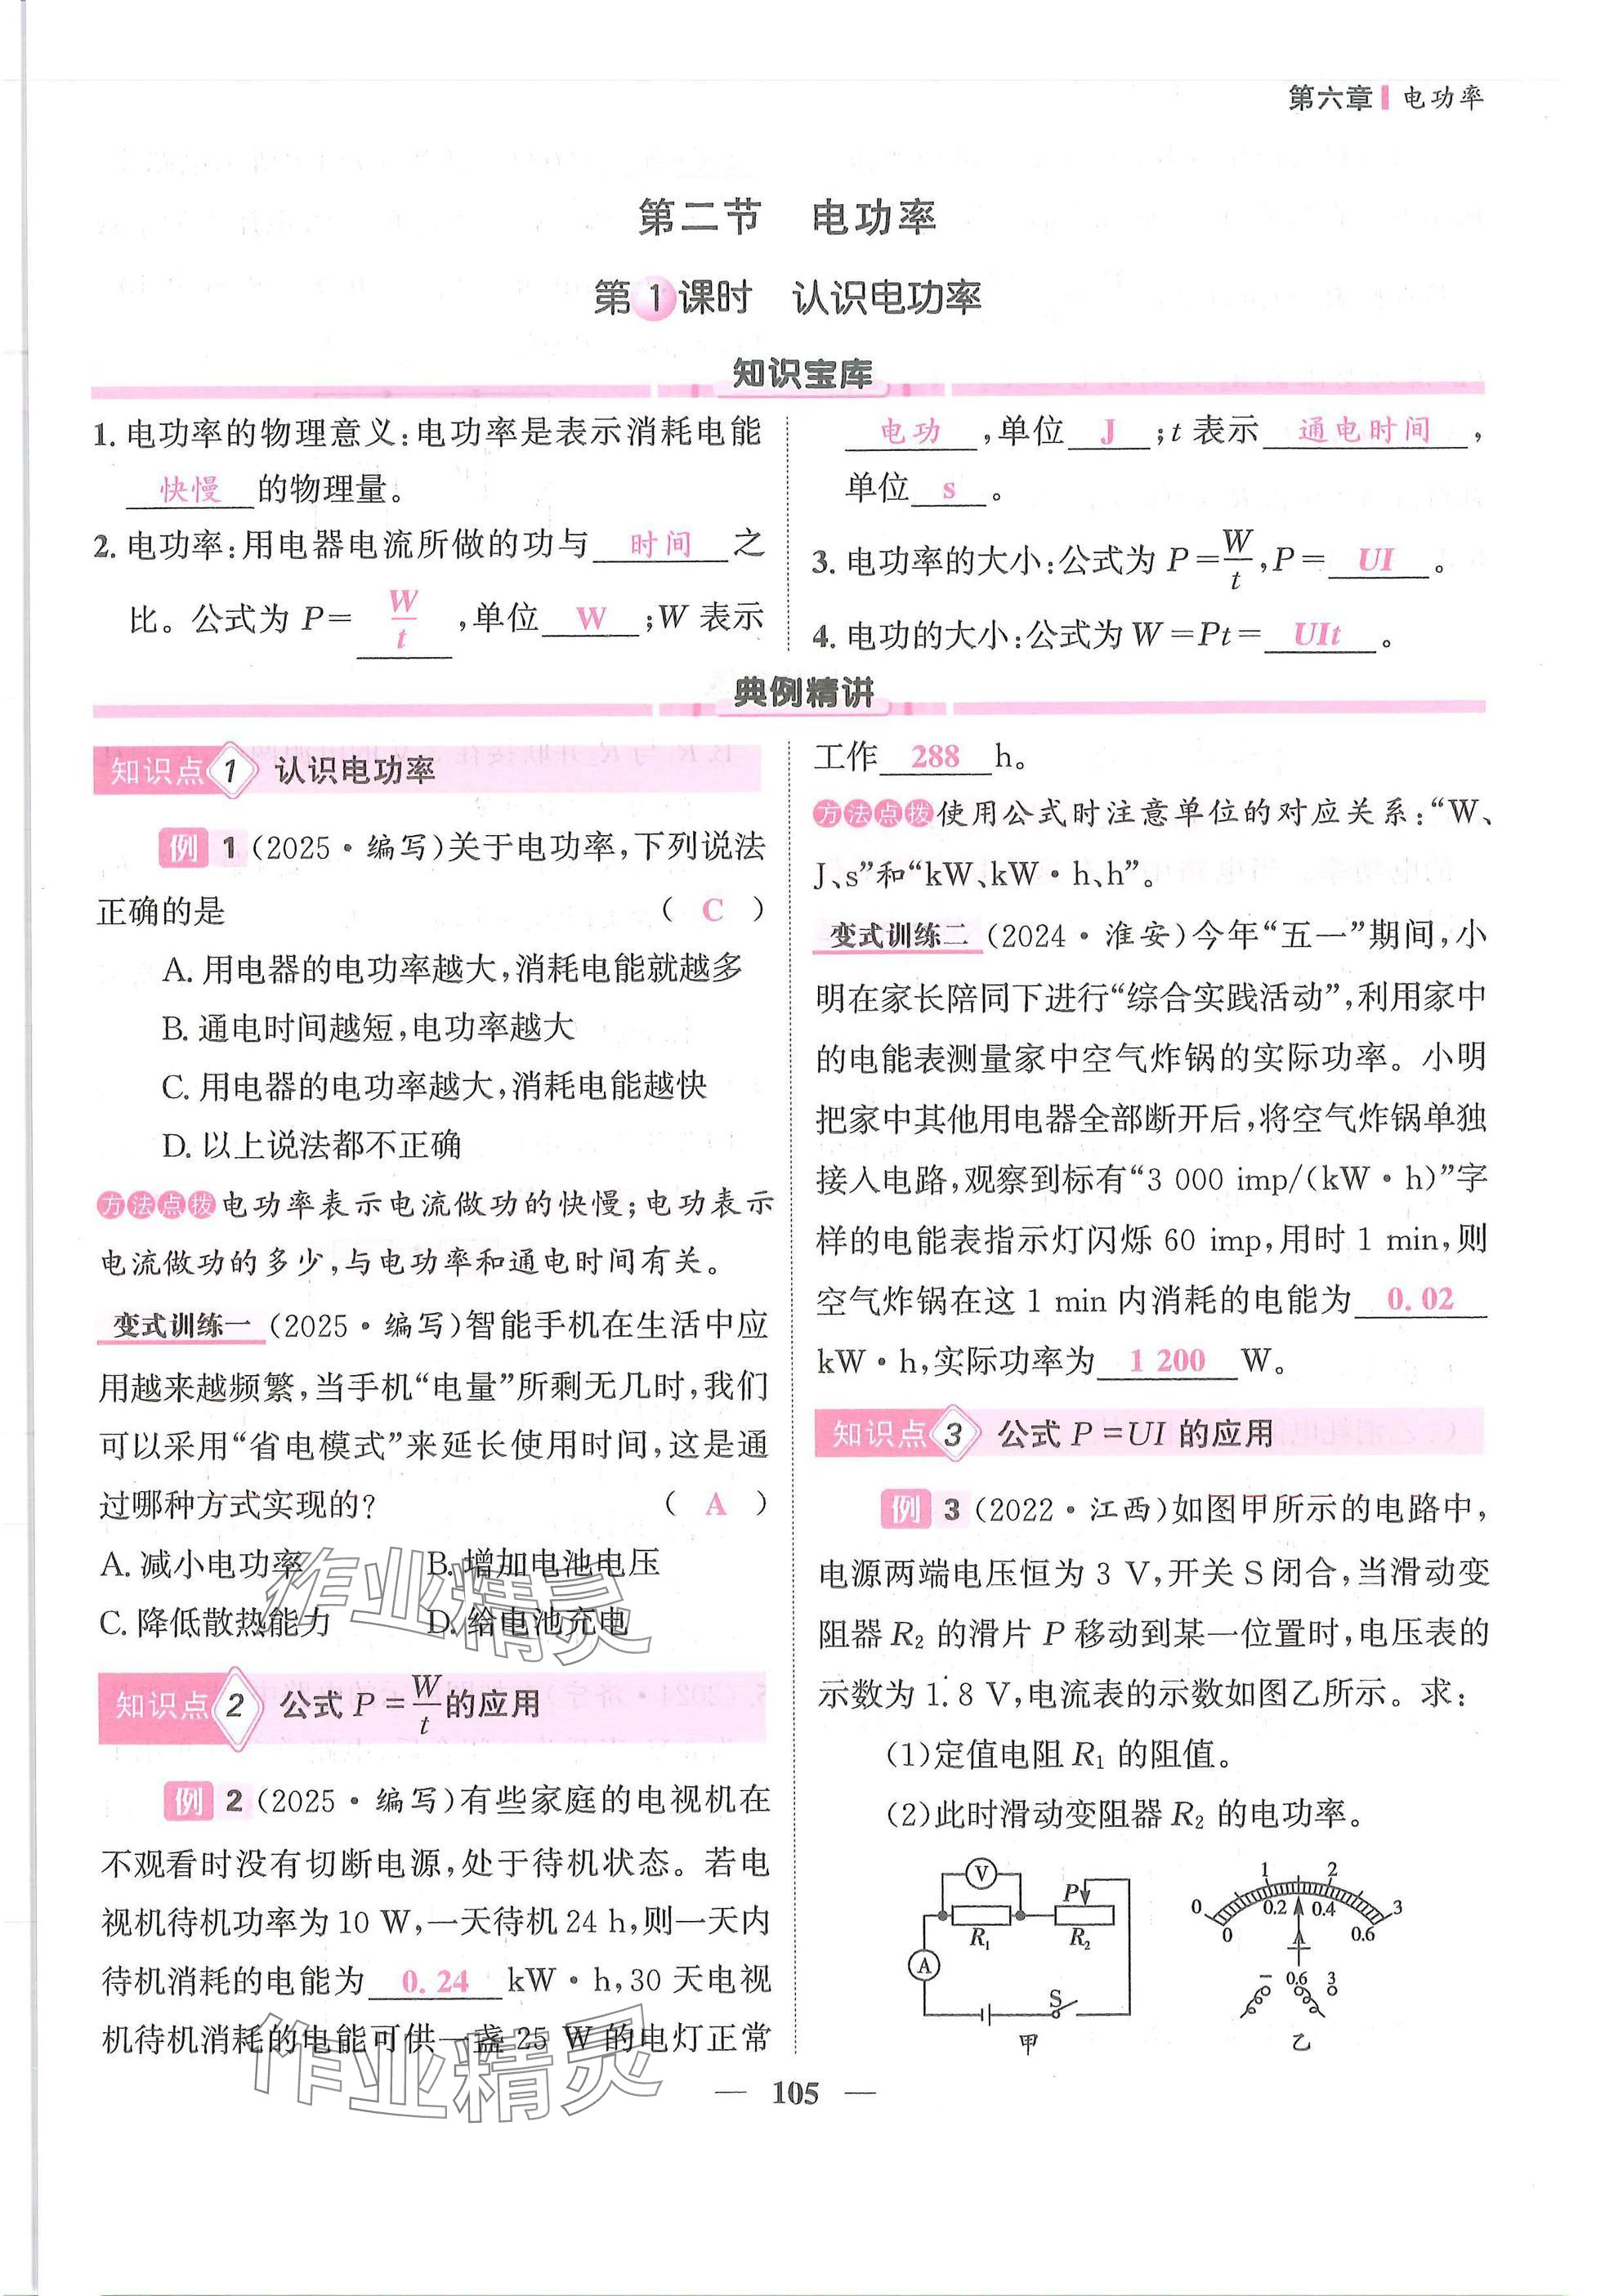 第六章 电功率
第二节 电功率
第1课时 认识电功率
知识宝库
1. 电功率的物理意义:电功率是表示消耗电能
快慢 的物理量。
2. 电功率:用电器电流所做的功与 时间 之
比。公式为 P= W/t ,单位 W ;W 表示
电功 ,单位 J ;t 表示 通电时间 ,
单位 s 。
3. 电功率的大小:公式为 P=W/t,P= UI 。
4. 电功的大小:公式为 W=Pt= UIt 。
典例精讲
知识点 1 认识电功率
例 1 (2025·编写)关于电功率,下列说法
正确的是 ( C )
A. 用电器的电功率越大,消耗电能就越多
B. 通电时间越短,电功率越大
C. 用电器的电功率越大,消耗电能越快
D. 以上说法都不正确
方法点拨 电功率表示电流做功的快慢;电功表示
电流做功的多少,与电功率和通电时间有关。
变式训练一 (2025·编写)智能手机在生活中应
用越来越频繁,当手机“电量”所剩无几时,我们
可以采用“省电模式”来延长使用时间,这是通
过哪种方式实现的? ( A )
A. 减小电功率 B. 增加电池电压
C. 降低散热能力 D. 给电池充电
作业精灵
知识点 2 公式 P=W/t 的应用
例 2 (2025·编写)有些家庭的电视机在
不观看时没有切断电源,处于待机状态。若电
视机待机功率为 10 W,一天待机 24 h,则一天内
待机消耗的电能为 0.24 kW·h,30 天电视
机待机消耗的电能可供一盏 25 W 的电灯正常
作业精灵
工作 288 h。
方法点拨 使用公式时注意单位的对应关系:“W、
J、s”和“kW、kW·h、h”。
变式训练二 (2024·淮安)今年“五一”期间,小
明在家长陪同下进行“综合实践活动”,利用家中
的电能表测量家中空气炸锅的实际功率。小明
把家中其他用电器全部断开后,将空气炸锅单独
接入电路,观察到标有“3 000 imp/(kW·h)”字
样的电能表指示灯闪烁 60 imp,用时 1 min,则
空气炸锅在这 1 min 内消耗的电能为 0.02
kW·h,实际功率为 1 200 W。
知识点 3 公式 P=UI 的应用
例 3 (2022·江西)如图甲所示的电路中,
电源两端电压恒为 3 V,开关 S 闭合,当滑动变
阻器 R₂ 的滑片 P 移动到某一位置时,电压表的
示数为 1.8 V,电流表的示数如图乙所示。求:
(1)定值电阻 R₁ 的阻值。
(2)此时滑动变阻器 R₂ 的电功率。
V
P
R₁ R₂
A
S
甲
0 1 2 3
0 0.2 0.4 0.6
A
− 0.6 3
乙
— 105 —